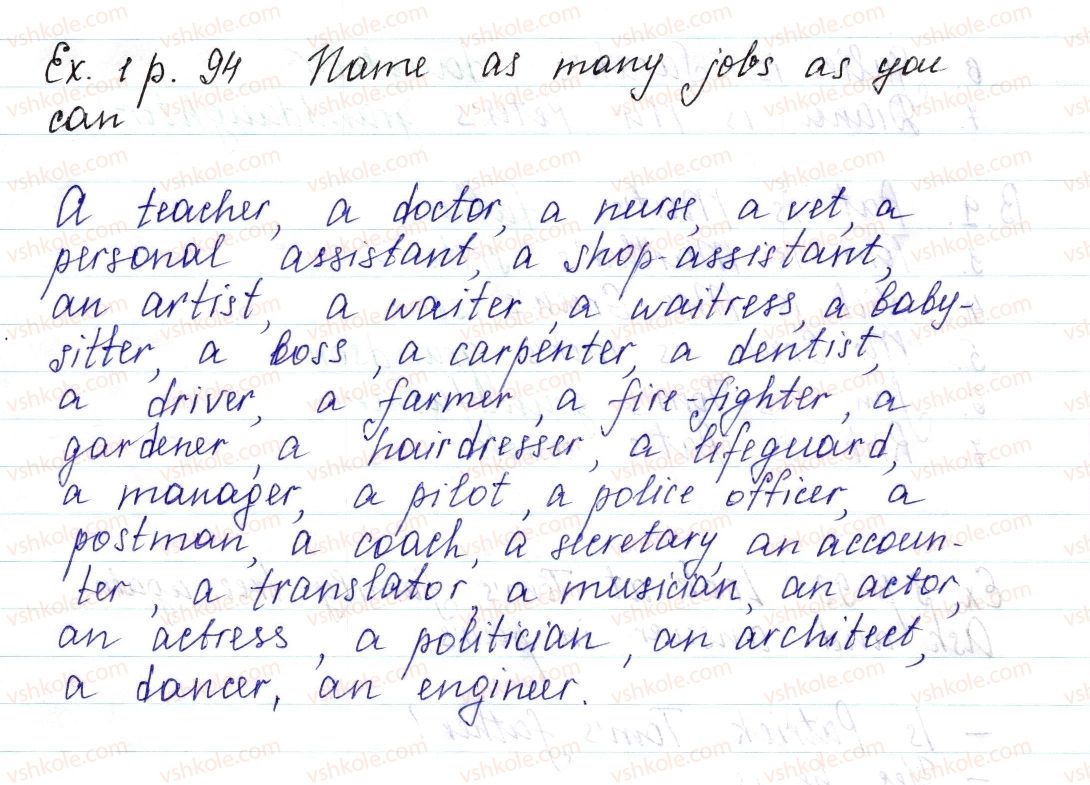 Ex. 1 p. 94 Name as many jobs as you
can
A teacher, a doctor, a nurse, a vet, a
personal assistant, a shop-assistant,
an artist, a waiter, a waitress, a baby-
sitter, a boss, a carpenter, a dentist,
a driver, a farmer, a fire-fighter, a
gardener, a hairdresser, a lifeguard,
a manager, a pilot, a police officer, a
postman, a coach, a secretary, an accoun-
ter, a translator, a musician, an actor,
an actress, a politician, an architect,
a dancer, an engineer.